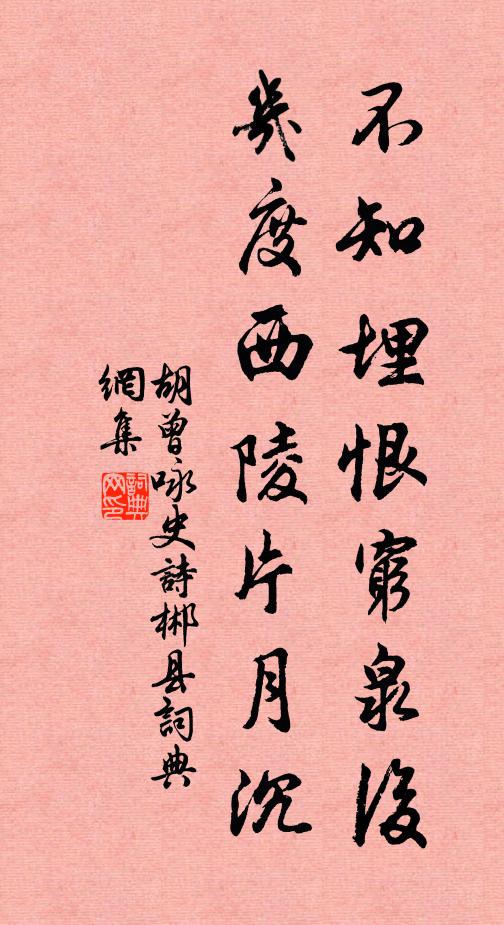 不知埋恨窮泉後
幾度西陵片月沉
胡曾咏史詩郴县詞典
網集
詞典
网印